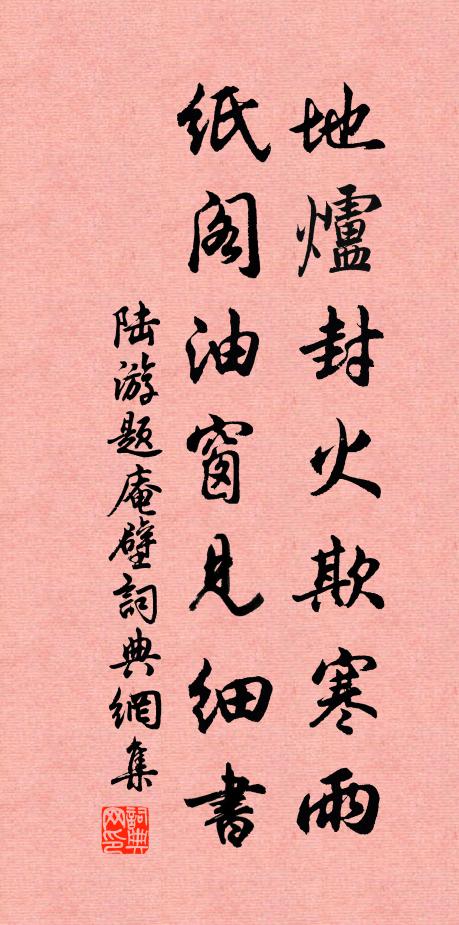 地爐封火欺寒雨
紙阁油窗見細書
陆游題庵壁詞典網集
詞典网印